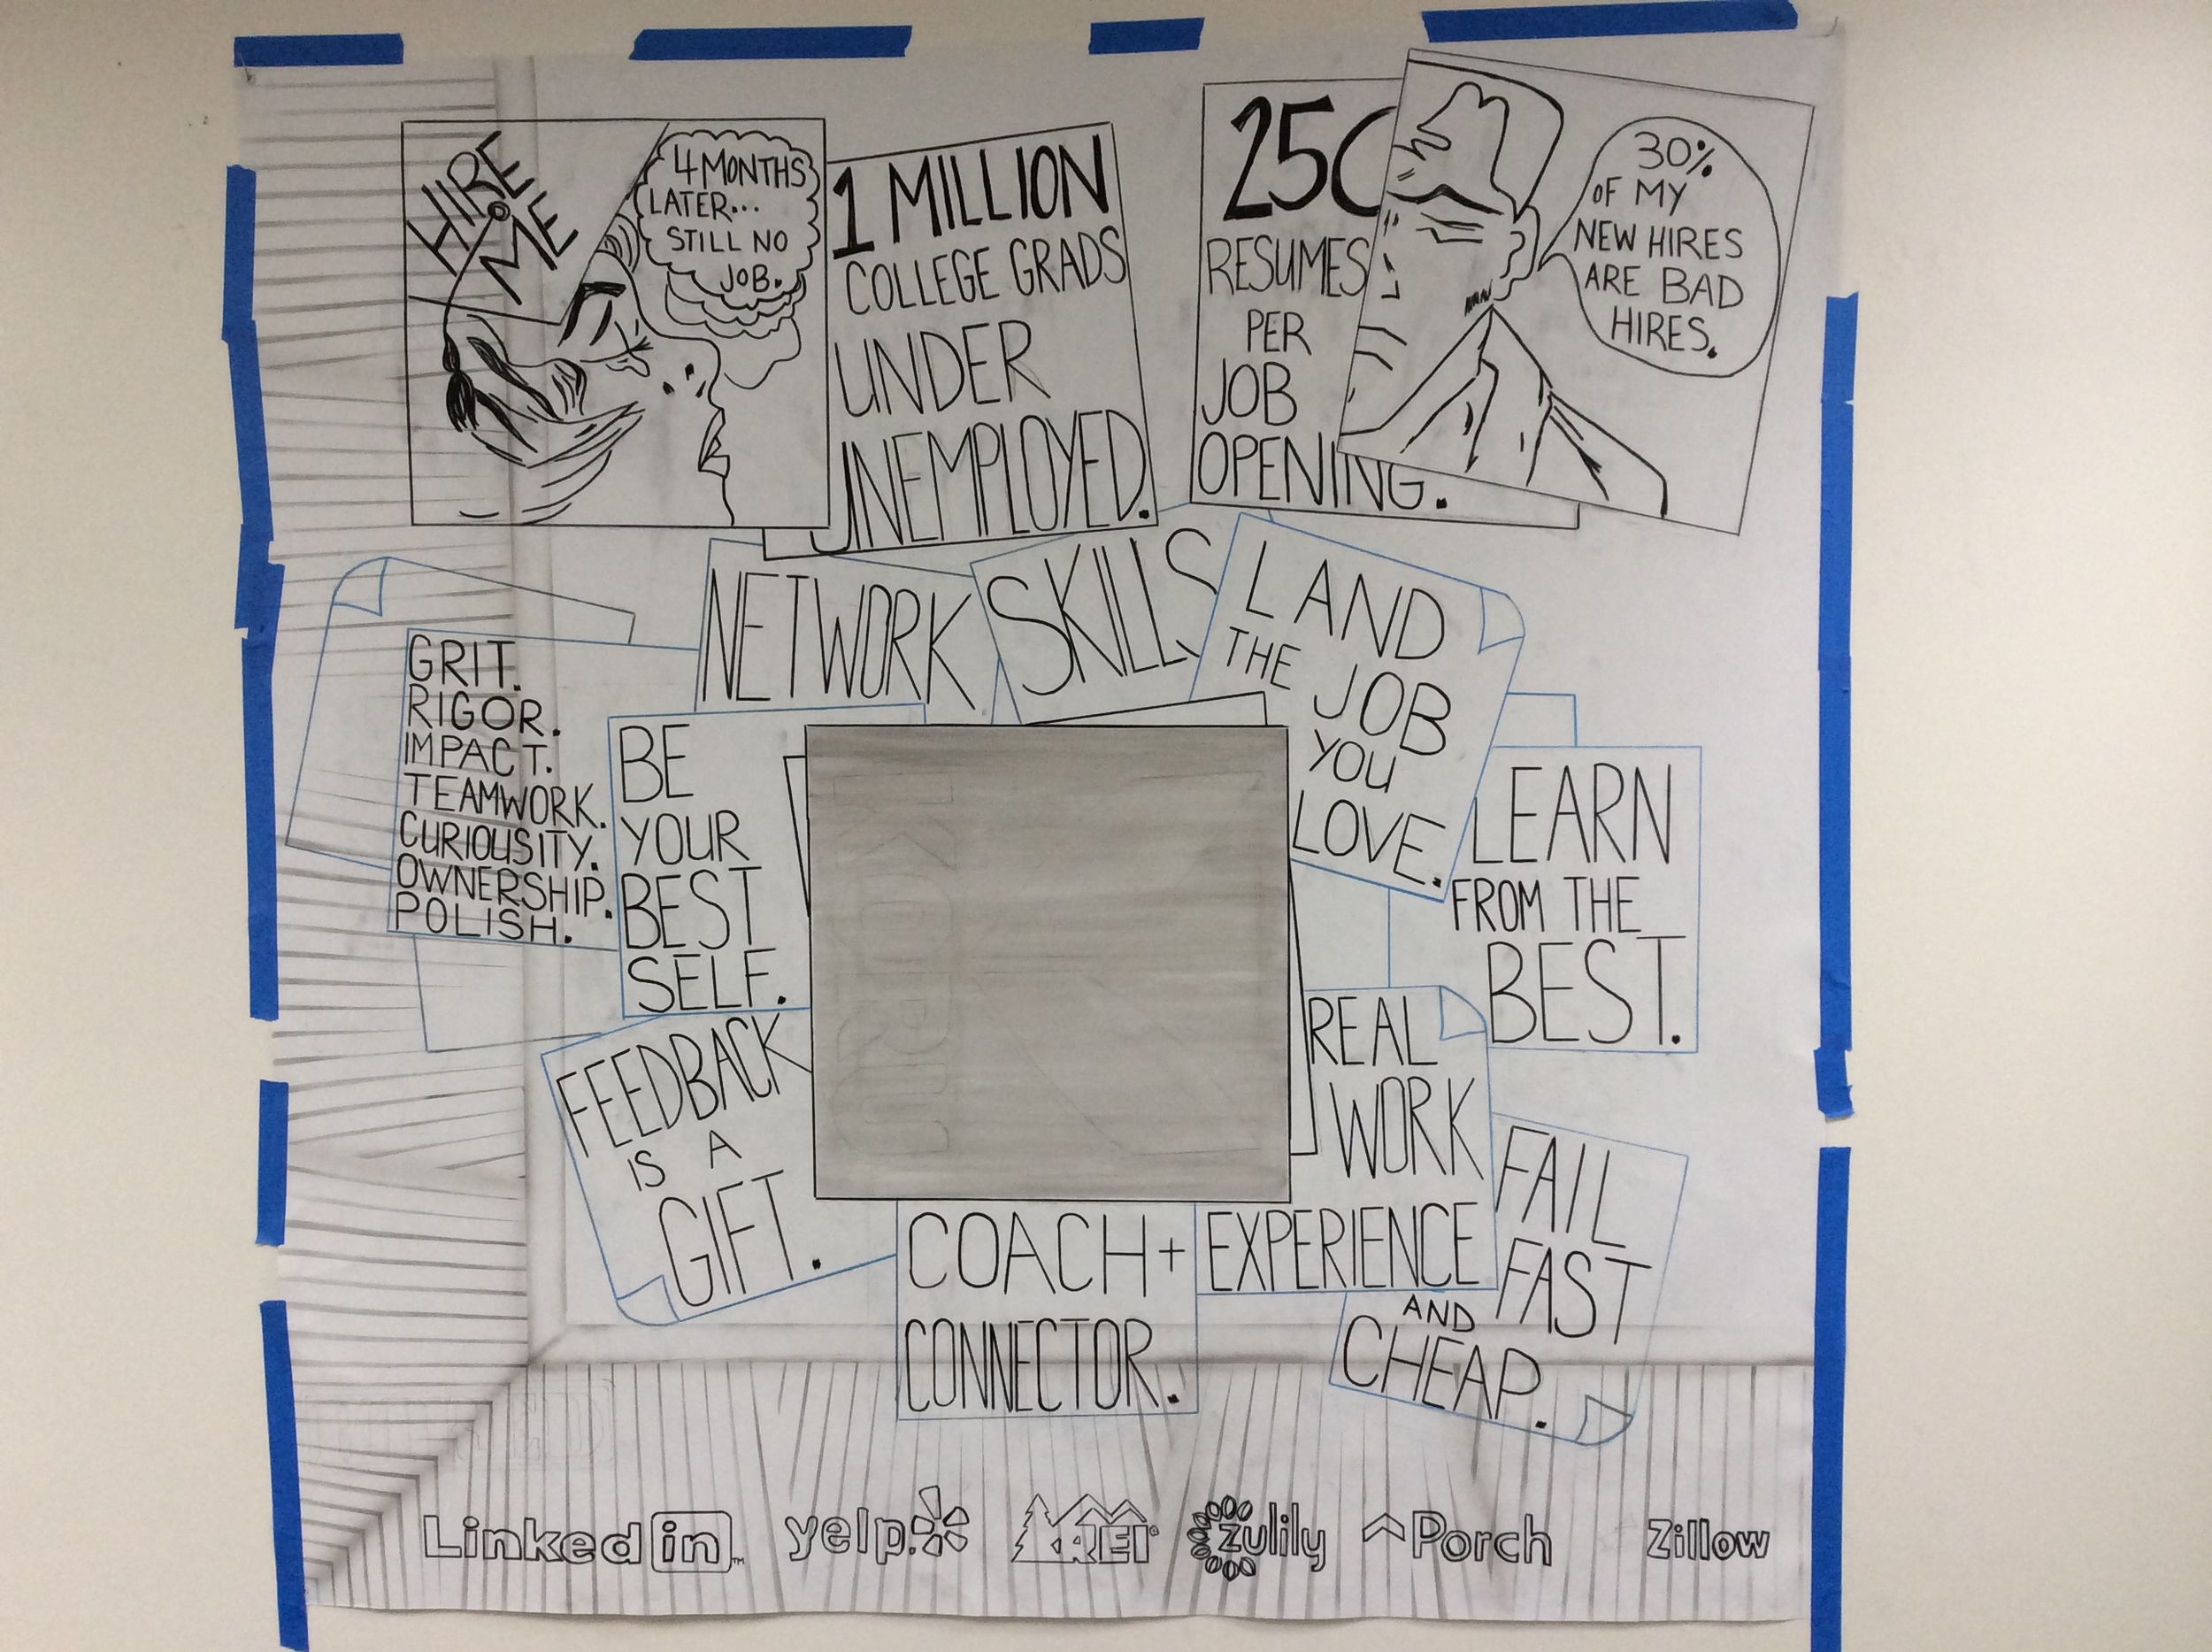 HIRE
ME
4 MONTHS
LATER...
STILL NO
JOB.
1 MILLION
COLLEGE GRADS
UNDER
UNEMPLOYED.
250
RESUMES
PER
JOB
OPENING.
30%
OF MY
NEW HIRES
ARE BAD
HIRES.
NETWORK
SKILLS
LAND
THE JOB
YOU
LOVE.
GRIT.
RIGOR.
IMPACT.
TEAMWORK.
CURIOUSITY.
OWNERSHIP.
POLISH.
BE
YOUR
BEST
SELF.
LEARN
FROM THE
BEST.
FEEDBACK
IS A
GIFT.
KORU
REAL
WORK
EXPERIENCE
COACH +
CONNECTOR.
FAIL
FAST
AND
CHEAP.
Linked in™
yelp
REI®
zulily
Porch
Zillow